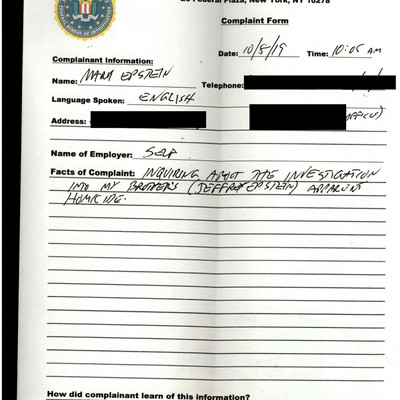 26 Federal Plaza, New York, NY 10278
Complaint Form
Date: 10/8/19 Time: 10:05 AM
Complainant Information:
Name: MARK EPSTEIN Telephone:
Language Spoken: ENGLISH
Address: OFFICE)
Name of Employer: SELF
Facts of Complaint: INQUIRING ABOUT THE INVESTIGATION
INTO MY BROTHER'S (JEFFREY EPSTEIN) APPARENT
HOMICIDE.
How did complainant learn of this information?